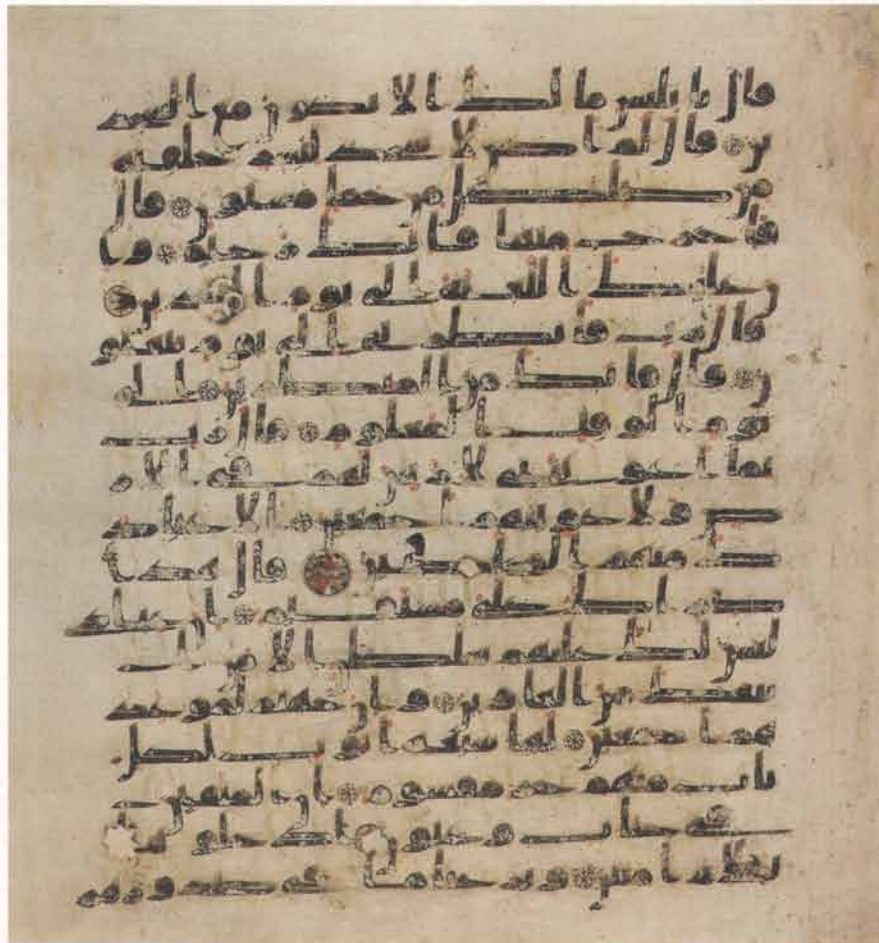 قال يابليس ما لك ا لا تكون مع السجد
ين قال لم ا كن لا سجد لبشر خلقته
من صلصل من حما مسنون قال
فاخرج منها فانك رجيم وا
ن عليك اللعنة الى يوم الدين
قال رب فانظرني الى يوم يبعثو
ن قال فانك من المنظرين الى
يوم الوقت المعلوم قال رب
بما اغويتني لازينن لهم في الار
ض ولاغوينهم اجمعين الا عباد
ك منهم المخلصين قال هذا
صرط على مستقيم ان عبادي
ليس لك عليهم سلطن الا من ا
تبعك من الغاوين وان جهنم لموعد
هم اجمعين لها سبعة ابوب لكل
باب منهم جز مقسوم ان المتقين
في جنات وعيون ادخلوها
بسلم امنين ونزعنا ما في صدورهم